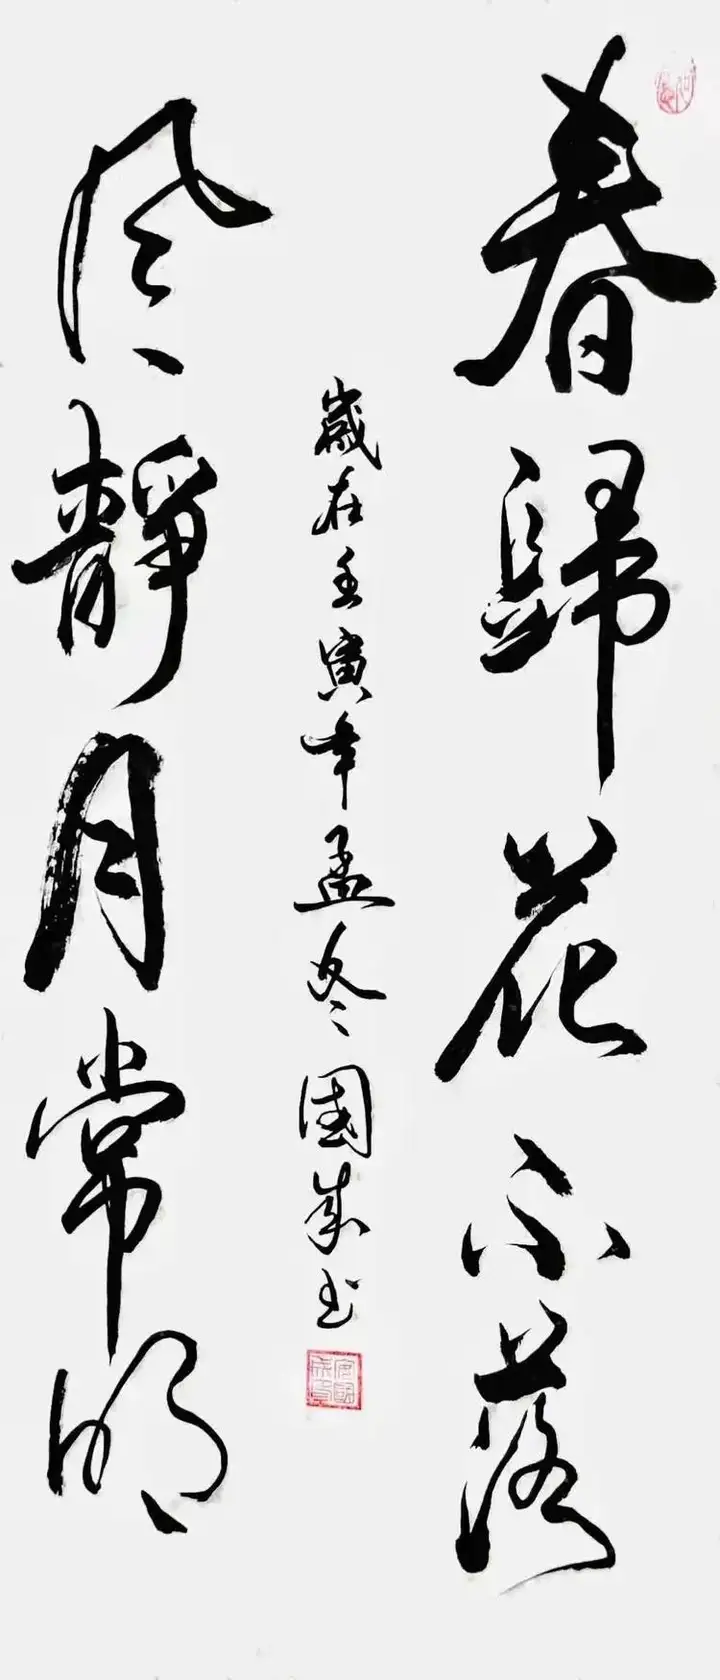 春歸花不落
風靜月常明
歲在壬寅年孟冬國成书